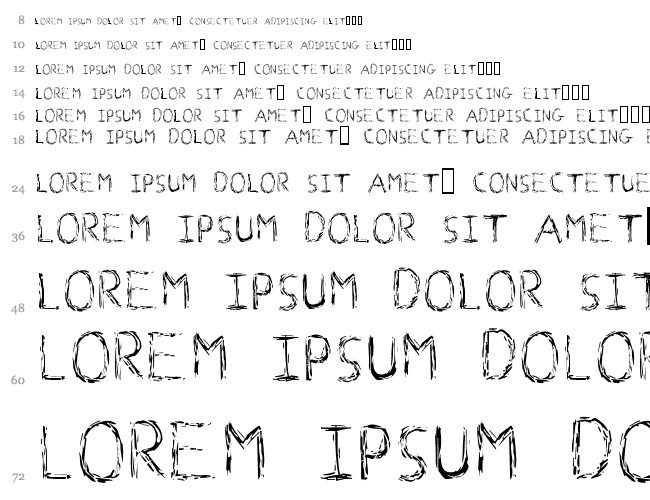 8 LOREM IPSUM DOLOR SIT AMET▯ CONSECTETUER ADIPISCING ELIT▯▯▯
10 LOREM IPSUM DOLOR SIT AMET▯ CONSECTETUER ADIPISCING ELIT▯▯▯
12 LOREM IPSUM DOLOR SIT AMET▯ CONSECTETUER ADIPISCING ELIT▯▯▯
14 LOREM IPSUM DOLOR SIT AMET▯ CONSECTETUER ADIPISCING ELIT▯▯▯
16 LOREM IPSUM DOLOR SIT AMET▯ CONSECTETUER ADIPISCING ELIT▯▯▯
18 LOREM IPSUM DOLOR SIT AMET▯ CONSECTETUER ADIPISCING E
24 LOREM IPSUM DOLOR SIT AMET▯ CONSECTETUE
36 LOREM IPSUM DOLOR SIT AMET
48 LOREM IPSUM DOLOR SIT
60 LOREM IPSUM DOLOR
72 LOREM IPSUM DO